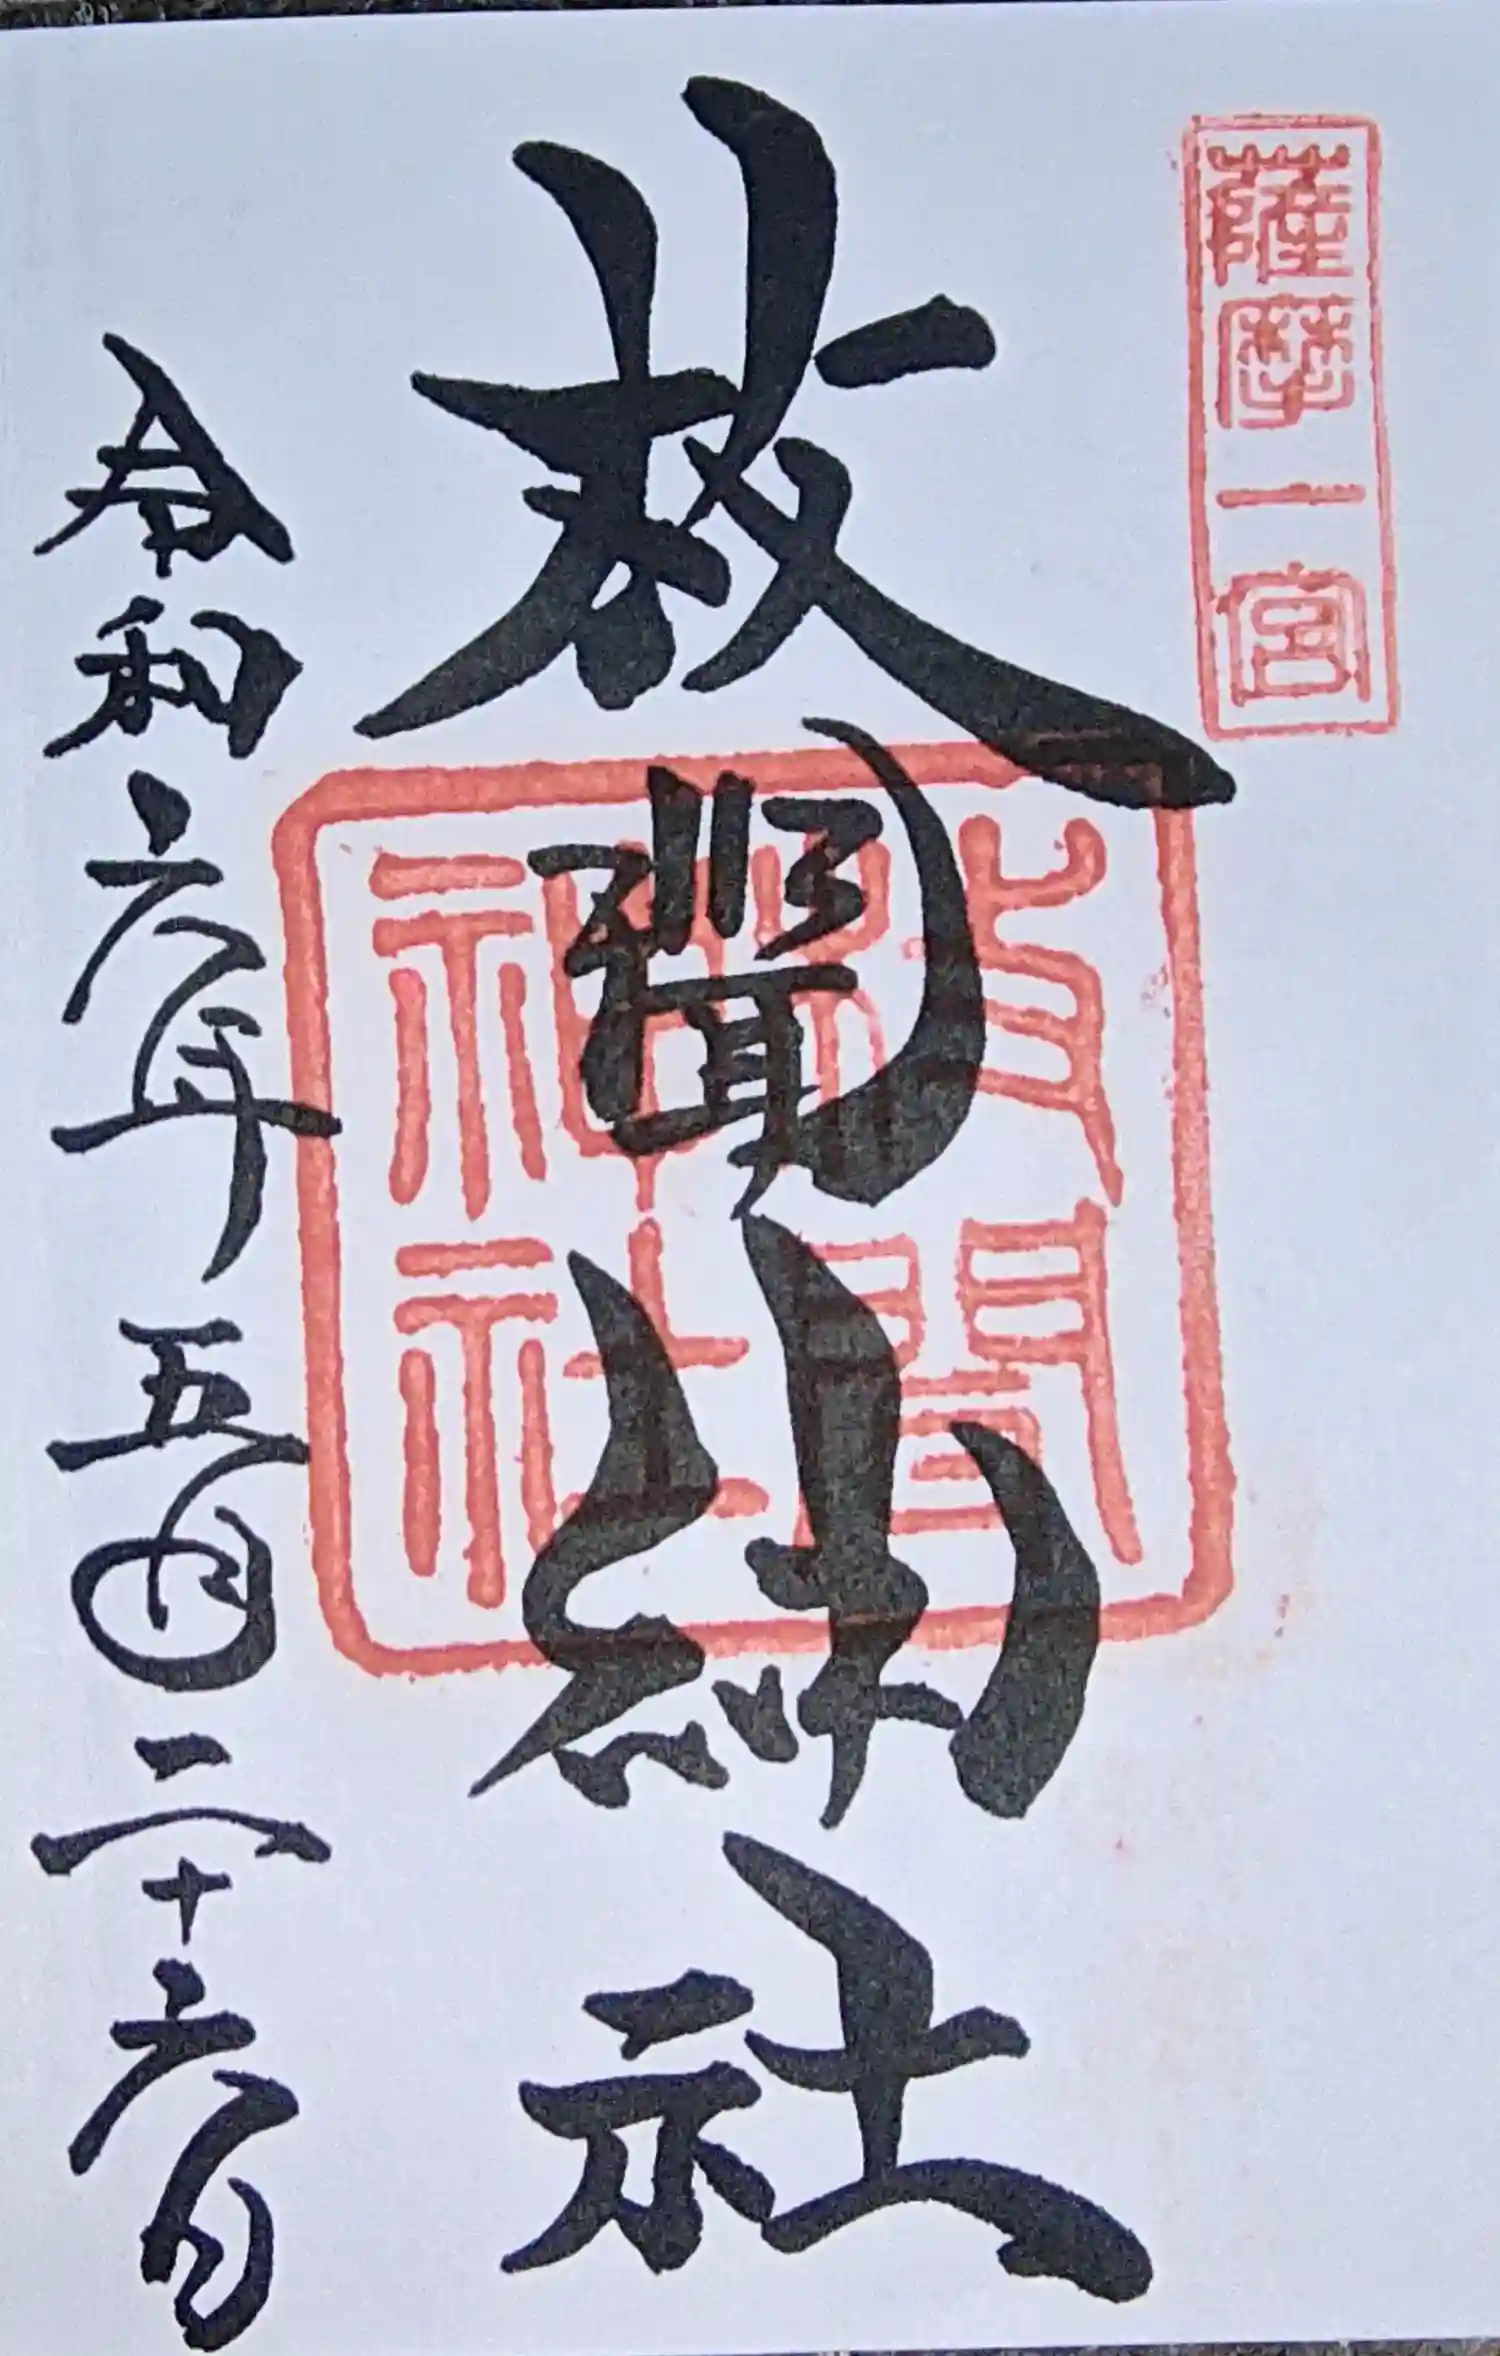 薩摩一宮
枚聞神社
枚聞神社
令和六年五月二十六日